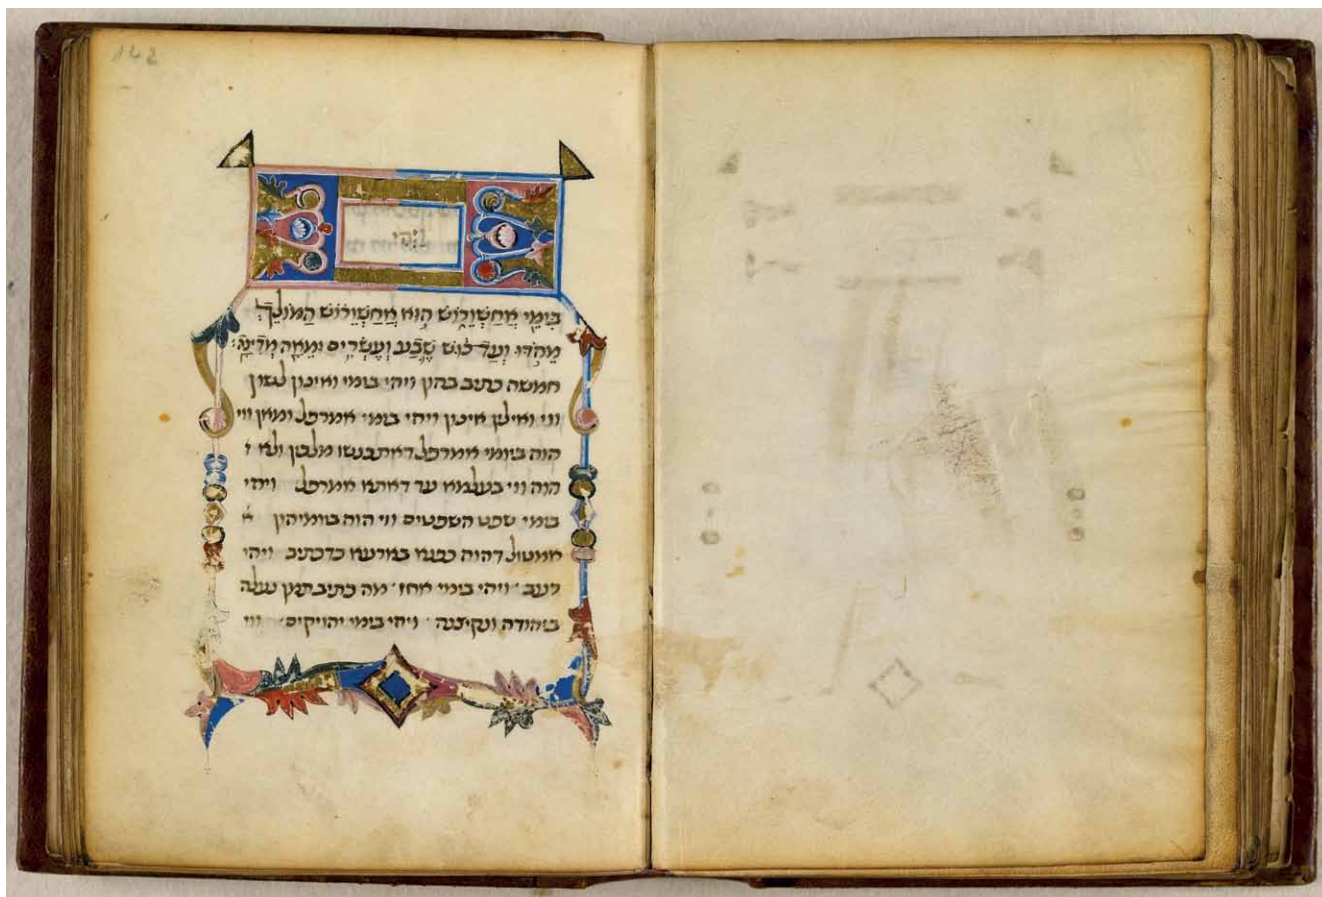 142
ויהי
בִּימֵי אֲחַשְׁוֵרוֹשׁ הוּא אֲחַשְׁוֵרוֹשׁ הַמּוֹלֵךְ
מֵהֹדּוּ וְעַד כּוּשׁ שֶׁבַע וְעֶשְׂרִים וּמֵאָה מְדִינָה׃
חמשה כתיב בהון ויהי בימי ואינון לשון
ווי ואילן אינון ויהי בימי אמרפל ומאן ווי
הוה בימי אמרפל דאתכנשו מלכין ולא
הוה ווי בעלמא עד דאתא אמרפל ויהי
בימי שפט השפטים ווי הוה ביומיהון א
אמטול דהוה כפנא בארעא כדכתיב ויהי
רעב ׳ ויהי בימי אחז ׳ מה כתיב תמן נעלה
ביהודה ונקיצנה ׳ ויהי בימי יהויקים ׳ ווי